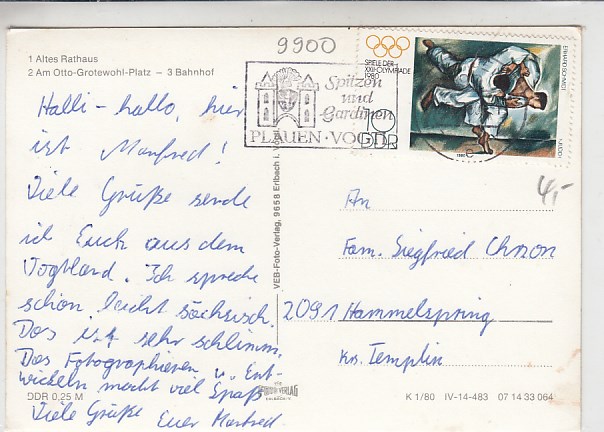 9900
1 Altes Rathaus
2 Am Otto-Grotewohl-Platz – 3 Bahnhof
Halli-hallo, hier
ist Manfred!
Viele Grüße sende
ich Euch aus dem
Vogtland. Ich spreche
schon leicht sächsisch.
Das ist sehr schlimm.
Das Fotographieren u. Ent-
wickeln macht viel Spaß
Viele Grüße
Euer Manfred
DDR 0,25 M
VEB-Foto-Verlag, 9658 Erlbach i. Vogtl.
Spitzen
und
Gardinen
PLAUEN · VOGTL
SPIELE DER
XXII. OLYMPIADE
1980
10
DDR
4,-
An
Fam. Siegfried
2091 Hammelspring
Krs. Templin
K 1/80 IV-14-483 07 14 33 064